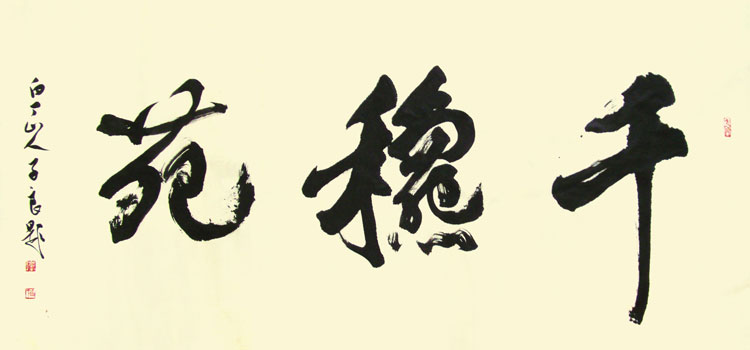 千龝苑
白丁山人子良题